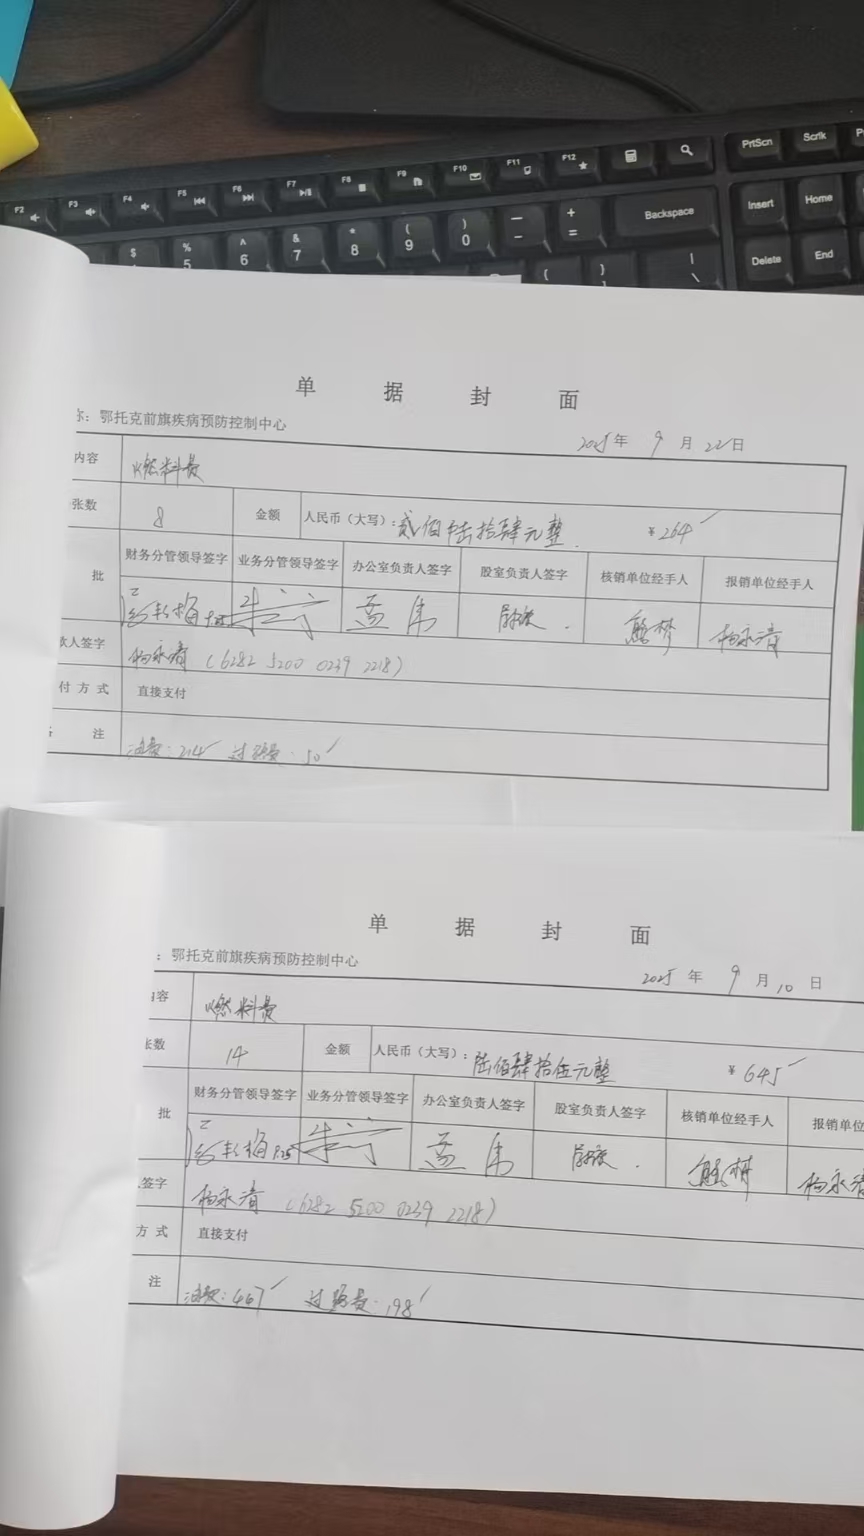 F2 F3 F4 F5 F6 F7 F8 F9 F10 F11 F12 PrtScn Scrlk
$ % 5 ^ 6 & 7 * 8 ( 9 ) 0 — - + = Backspace Insert Home
{ } | \ Delete End
单据封面
称：鄂托克前旗疾病预防控制中心
2025年 9 月 22 日
内容 燃料费
张数 8 金额 人民币（大写）：贰佰陆拾肆元整 ￥264
批 财务分管领导签字 业务分管领导签字 办公室负责人签字 股室负责人签字 核销单位经手人 报销单位经手人
孟伟 杨永清
款人签字 杨永清（6282 5200 0239 2218）
付方式 直接支付
注 油费：214 过路费：50
单据封面
：鄂托克前旗疾病预防控制中心
2025 年 9 月 10 日
内容 燃料费
张数 14 金额 人民币（大写）：陆佰肆拾伍元整 ￥645
批 财务分管领导签字 业务分管领导签字 办公室负责人签字 股室负责人签字 核销单位经手人 报销单位
孟伟 杨永清
签字 杨永清（6282 5200 0239 2218）
方式 直接支付
注 油费：467 过路费：198